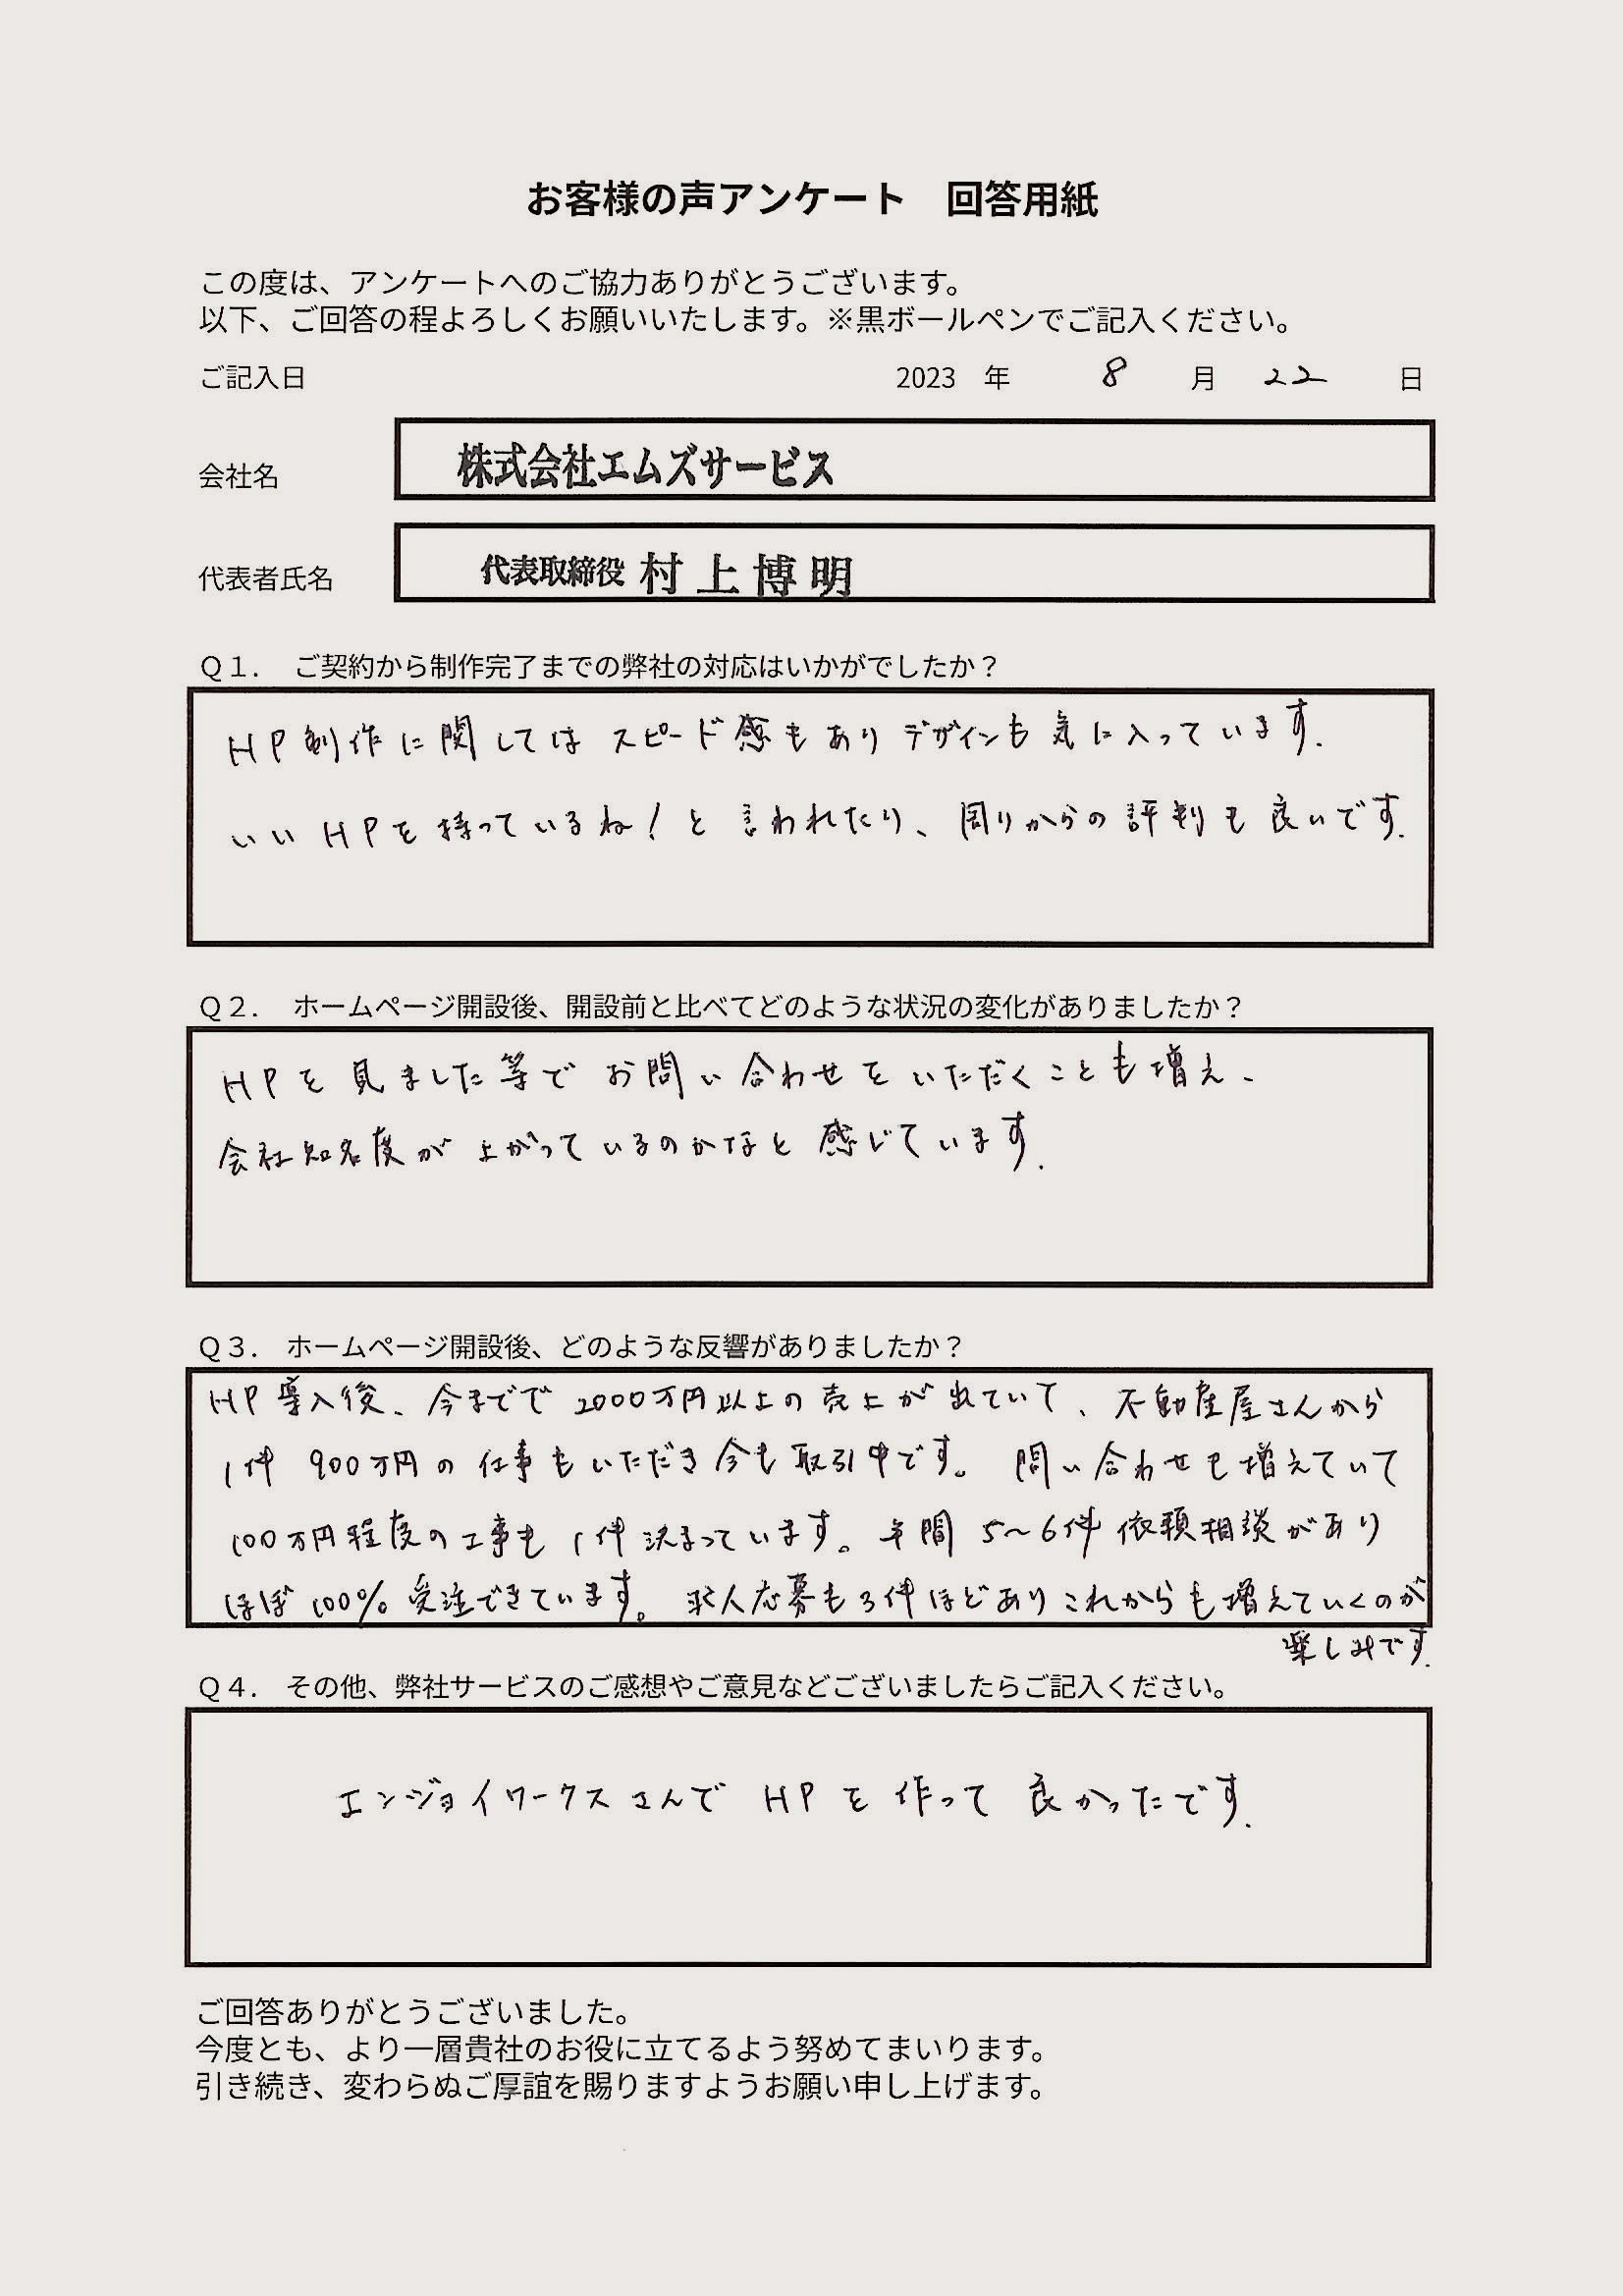 お客様の声アンケート　回答用紙
この度は、アンケートへのご協力ありがとうございます。
以下、ご回答の程よろしくお願いいたします。※黒ボールペンでご記入ください。
ご記入日 2023 年 8 月 22 日
会社名 株式会社エムズサービス
代表者氏名 代表取締役 村上博明
Q1.　ご契約から制作完了までの弊社の対応はいかがでしたか？
HP制作に関しては スピード感もあり デザインも気に入っています.
いいHPを持っているね！と言われたり、周りからの評判も良いです.
Q2.　ホームページ開設後、開設前と比べてどのような状況の変化がありましたか？
HPを見ました等で お問い合わせをいただくことも増え、
会社知名度が上がっているのかなと感じています.
Q3.　ホームページ開設後、どのような反響がありましたか？
HP導入後、今までで2000万円以上の売上が出ていて、不動産屋さんから
1件 900万円の仕事もいただき今も取引中です。 問い合わせも増えていて
100万円程度の工事も1件決まっています。年間5〜6件依頼相談があり
ほぼ100％受注できています。求人応募も3件ほどありこれからも増えていくのが
楽しみです.
Q4.　その他、弊社サービスのご感想やご意見などございましたらご記入ください。
エンジョイワークスさんで HPを作って 良かったです.
ご回答ありがとうございました。
今度とも、より一層貴社のお役に立てるよう努めてまいります。
引き続き、変わらぬご厚誼を賜りますようお願い申し上げます。